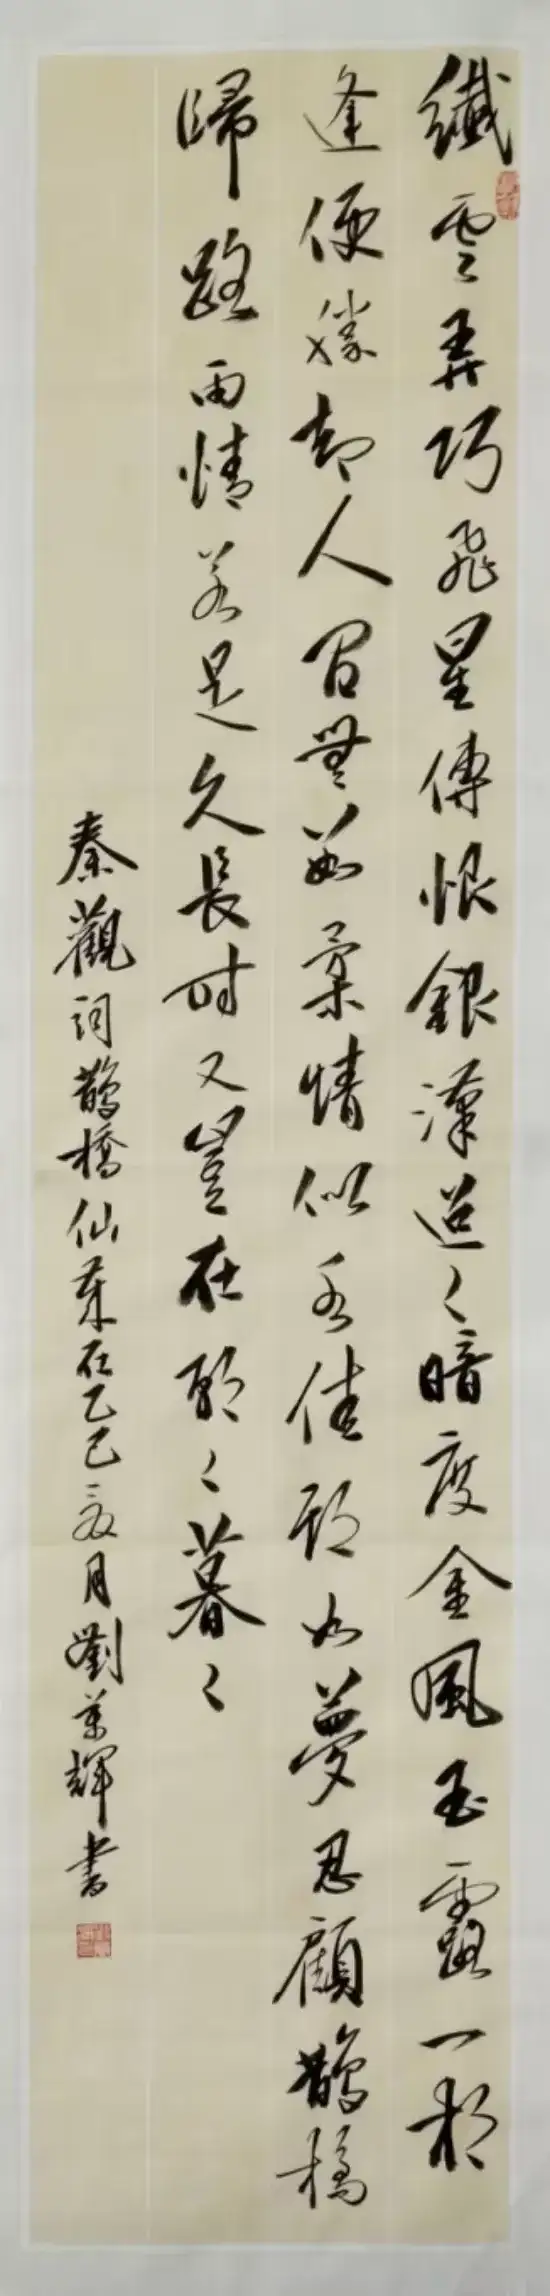 纖雲弄巧飛星傳恨銀漢迢々暗度金風玉露一相
逢便勝却人間無數柔情似水佳期如夢忍顧鵲橋
歸路两情若是久長時又豈在朝々暮々
秦觀詞鵲橋仙歲在乙巳夏月劉輝書